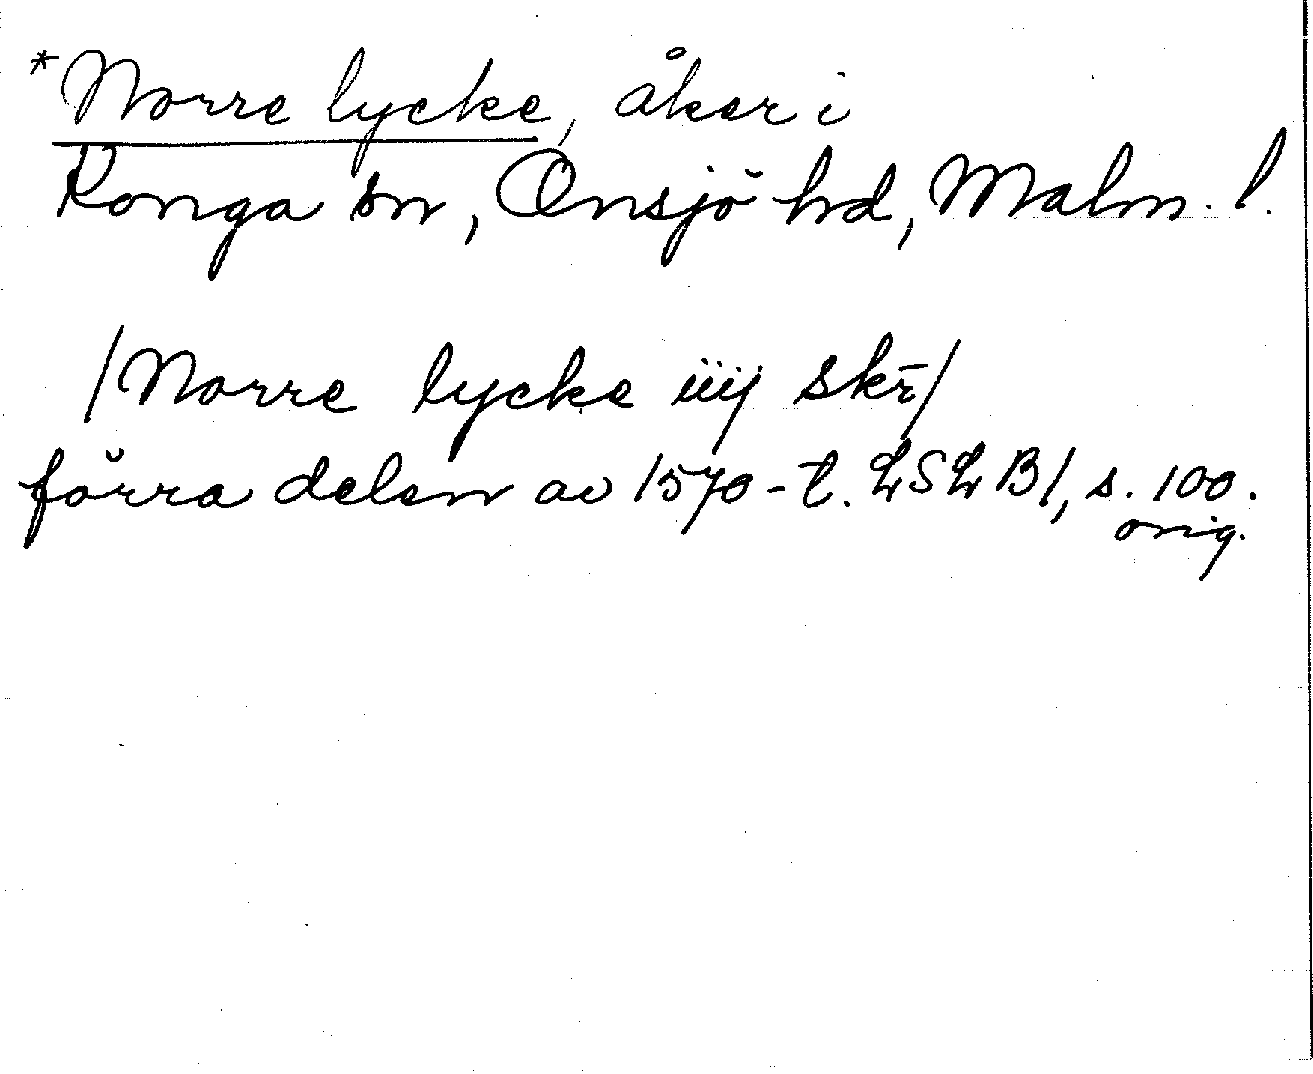 *Norre lycke, åker i
Ronga sn, Onsjö hd, Malm. l.
/Norre lycke iiij skr̄/
förra delen av 1570-t. LSLB1, s. 100.
orig.